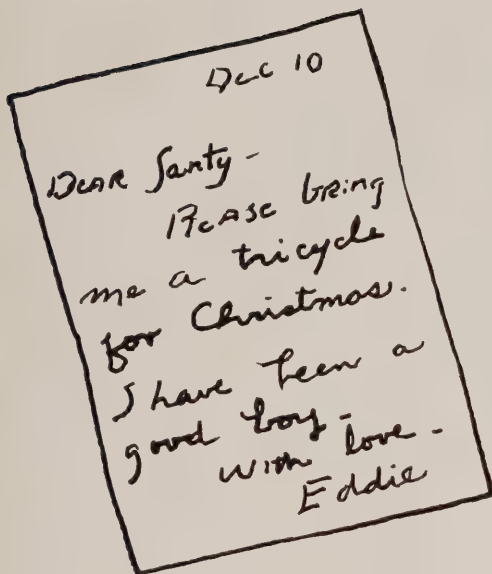 Dec 10
Dear Santy-
Please bring
me a tricycle
for Christmas.
I have been a
good boy-
with love-
Eddie